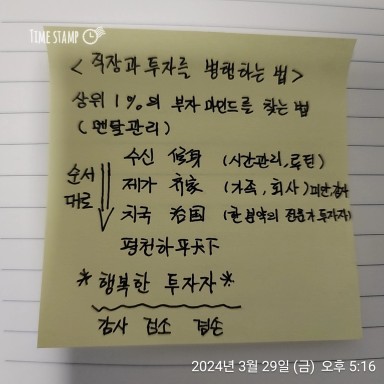 TIME STAMP
< 직장과 투자를 병행하는 법 >
상위 1%의 부자 마인드를 찾는 법
(멘탈관리)
순서대로
수신 修身 (시간관리, 루틴)
제가 齊家 (가족, 회사)
치국 治国 (한 분야의 전문가 투자자)
평천하 平天下
* 행복한 투자자 *
감사 검소 겸손
2024년 3월 29일 (금) 오후 5:16